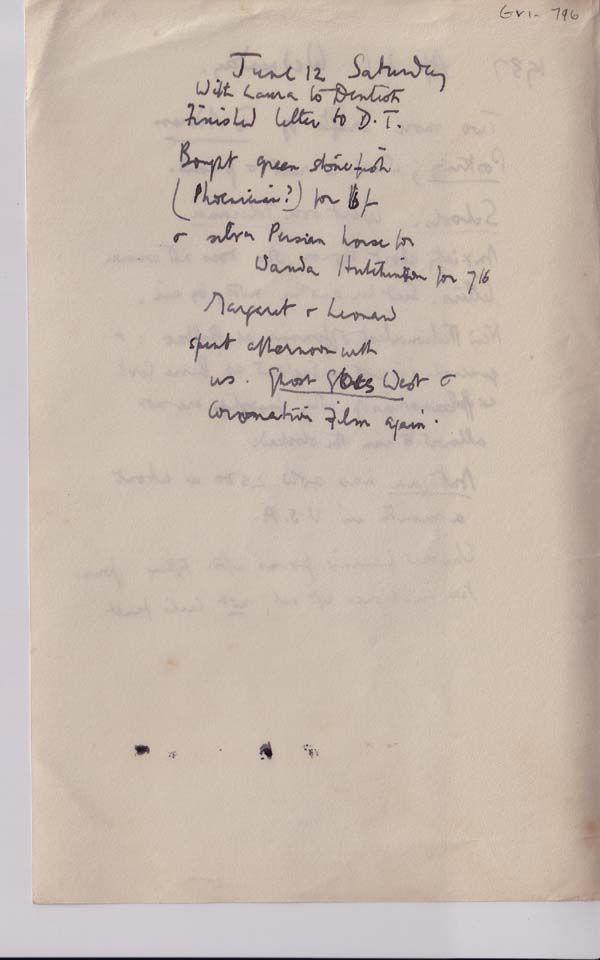 796
June 12 Saturday
With Laura to Dentist
Finished letter to D.T.
Bought green stone fish
(Phoenician?) for 6/-
& silver Persian horse for
Wanda Hutchinson for 7/6
Margaret & Leonard
spent afternoon with
us. Ghost Goes West &
Coronation Film again.